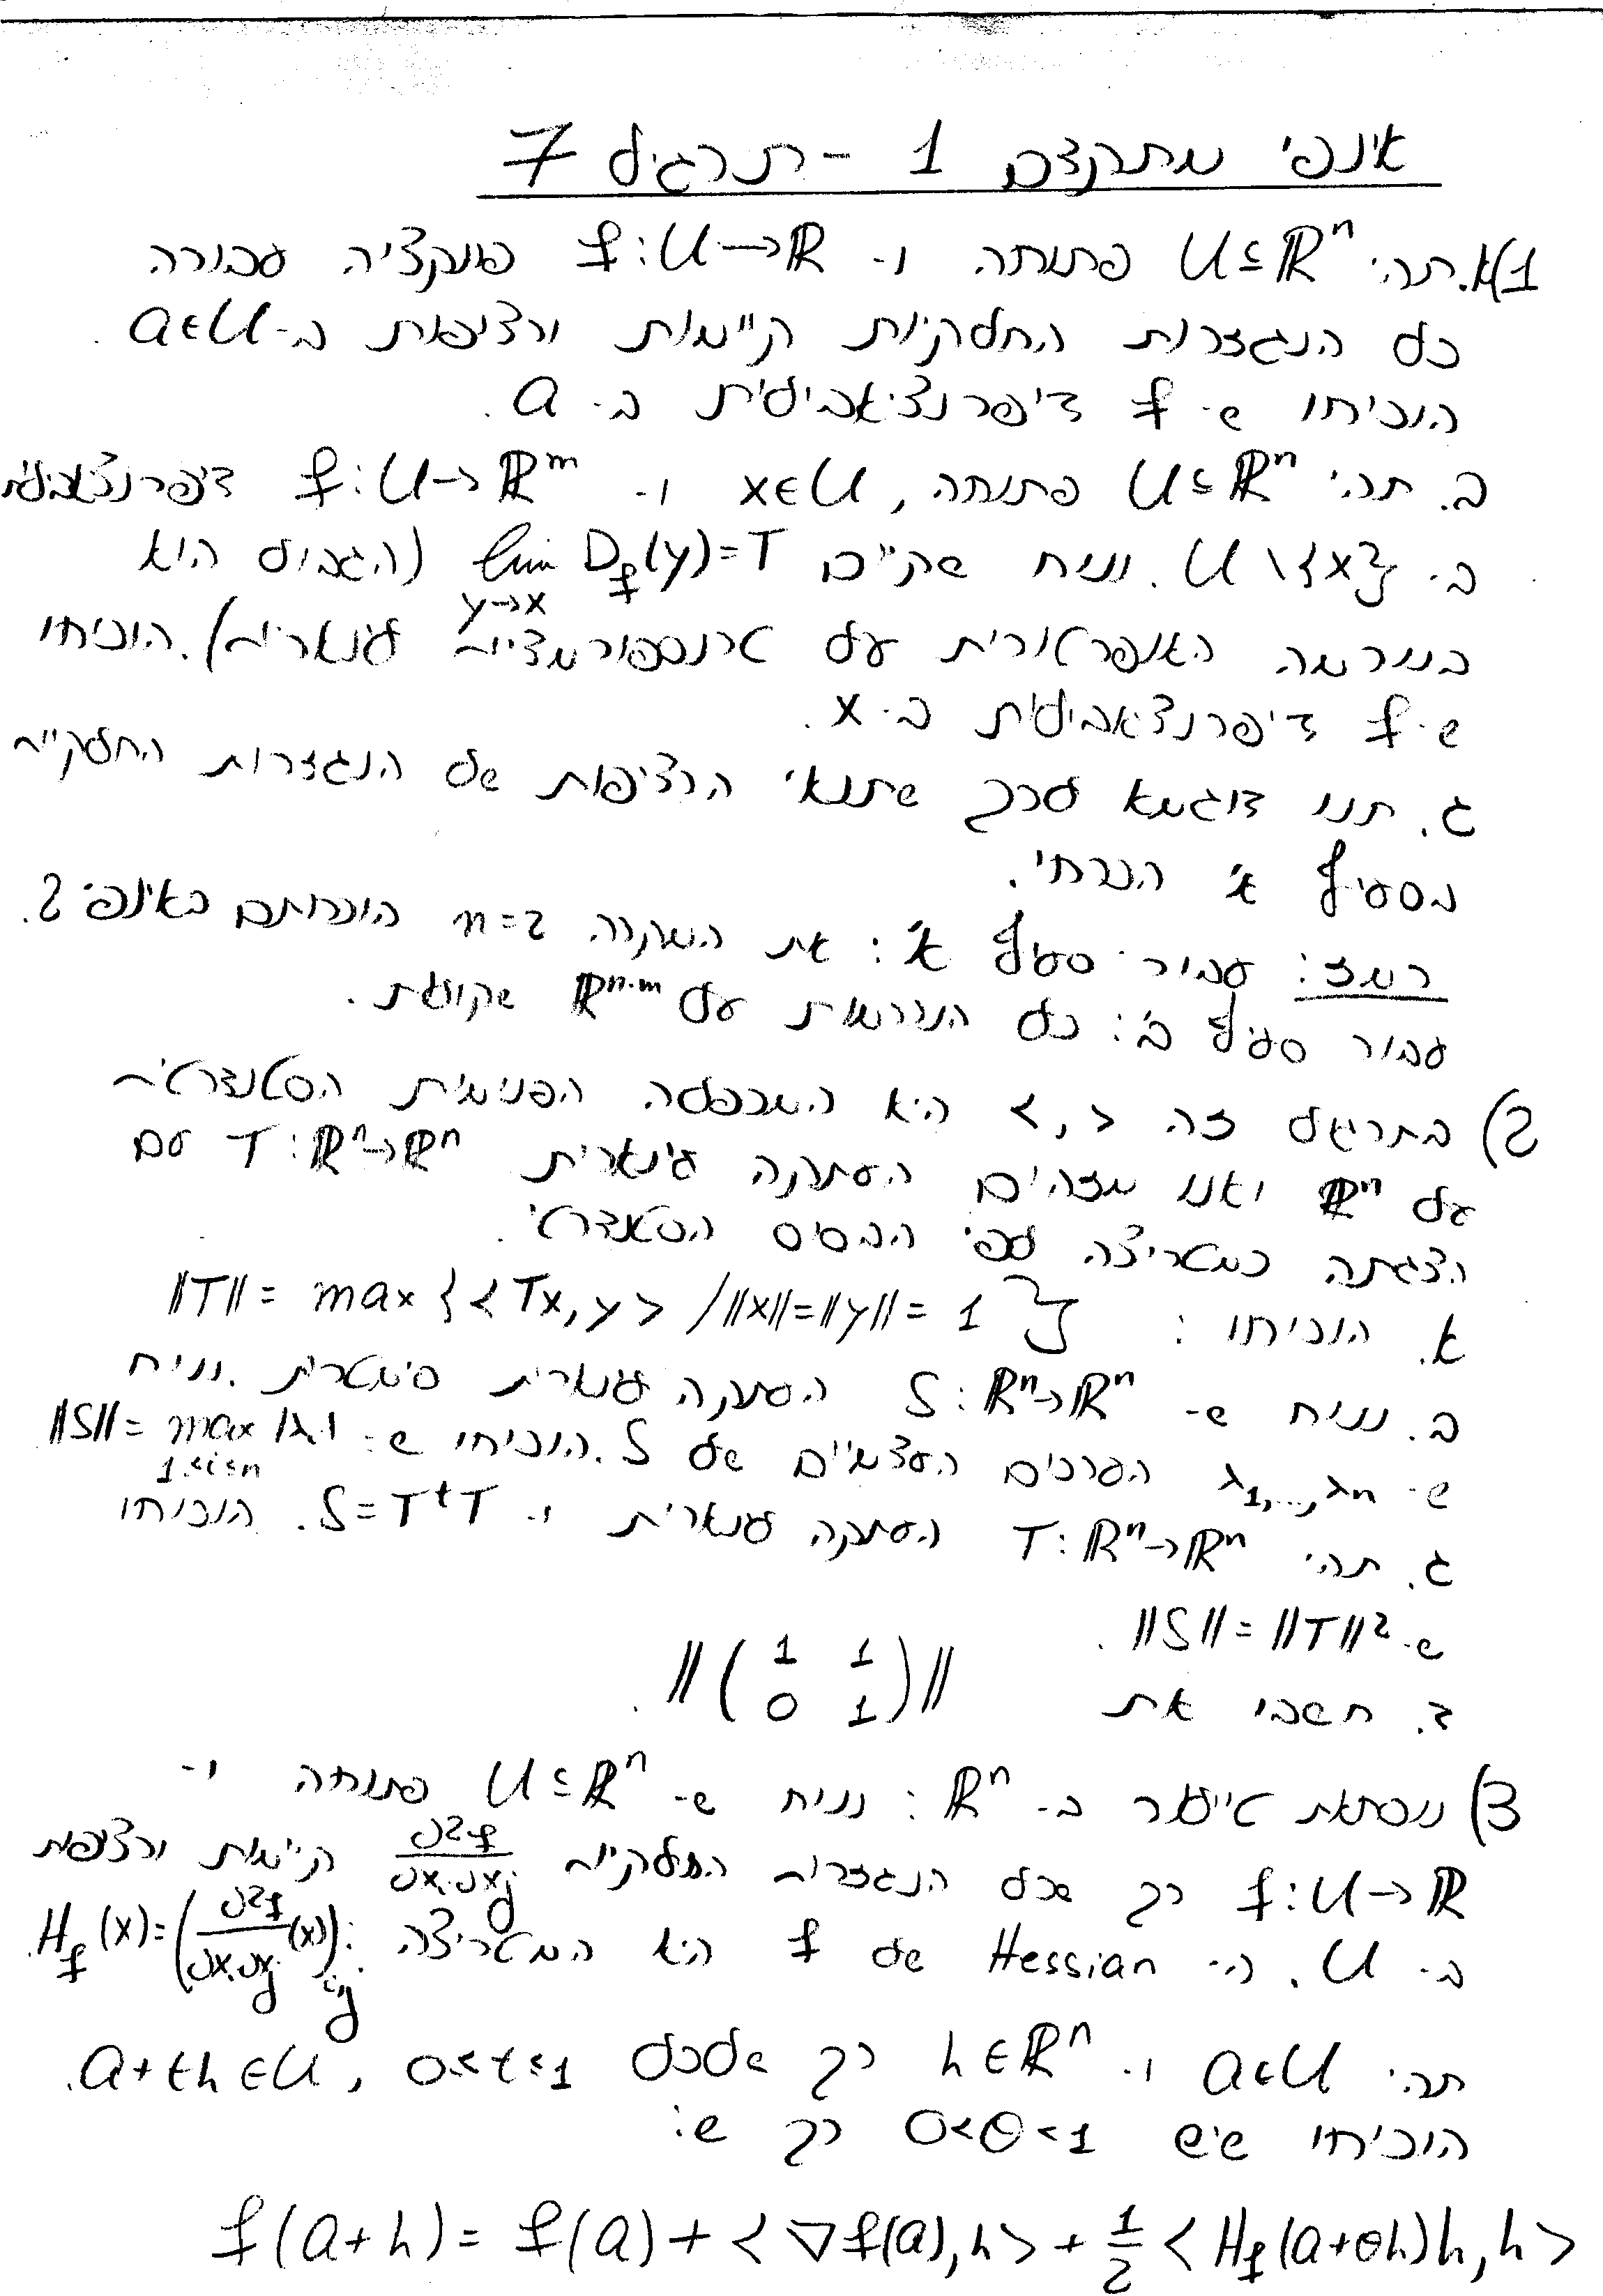 אינפי מתקדם 1 - תרגיל 7
1) א. תהי U ⊆ ℝⁿ פתוחה ו- f:U→ℝ פונקציה עבורה
כל הנגזרות החלקיות קיימות ורציפות ב- a∈U.
הוכיחו ש- f דיפרנציאבילית ב- a.
ב. תהי U ⊆ ℝⁿ פתוחה, x∈U ו- f:U→ℝᵐ דיפרנציאבילית
ב- U\{x}. נניח שקיים lim_{y→x} D_f(y)=T (הגבול הוא
בנורמה האופרטורית על טרנספורמציות לינאריות). הוכיחו
ש- f דיפרנציאבילית ב- x.
ג. תנו דוגמא לכך שתנאי הרציפות של הנגזרות החלקיות
בסעיף א' הכרחי.
רמז: עבור סעיף א': את המקרה n=2 הוכחתם באינפי 2.
עבור סעיף ב': כל הנורמות על ℝⁿ·ᵐ שקולות.
2) בתרגיל זה <,> היא המכפלה הפנימית הסטנדרטית
על ℝⁿ ואנו מזהים העתקה לינארית T:ℝⁿ→ℝⁿ עם
הצגתה כמטריצה לפי הבסיס הסטנדרטי.
א. הוכיחו: ‖T‖ = max{<Tx,y> / ‖x‖=‖y‖=1}
ב. נניח ש- S:ℝⁿ→ℝⁿ העתקה לינארית סימטרית. נניח
ש- λ₁,...,λₙ הערכים העצמיים של S. הוכיחו ש: ‖S‖ = max_{1≤i≤n} |λᵢ|
ג. תהי T:ℝⁿ→ℝⁿ העתקה לינארית ו- S=TᵗT. הוכיחו
ש- ‖S‖=‖T‖².
ד. חשבו את ‖(1 1 / 0 1)‖.
3) נוסחאת טיילור ב- ℝⁿ: נניח ש- U ⊆ ℝⁿ פתוחה ו-
f:U→ℝ כך שכל הנגזרות החלקיות ∂²f/∂xᵢ∂xⱼ קיימות ורציפות
ב- U. ה- Hessian של f היא המטריצה: H_f(x)=(∂²f/∂xᵢ∂xⱼ(x))ᵢ,ⱼ.
תהי a∈U ו- h∈ℝⁿ כך שלכל 0≤t≤1, a+th∈U.
הוכיחו שיש 0<θ<1 כך ש:
f(a+h) = f(a) + <∇f(a),h> + ½ <H_f(a+θh)h,h>